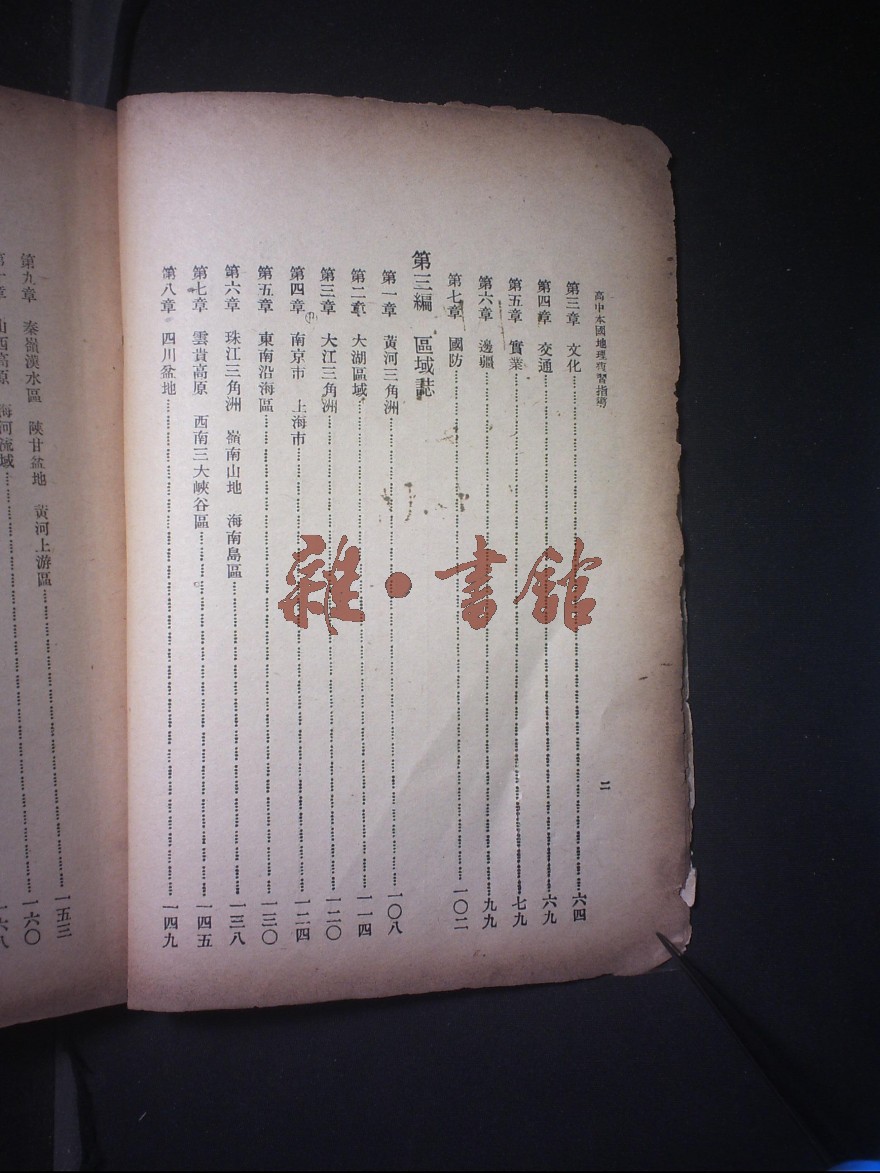 高中本國地理複習指導
二
第三章 文化 六四
第四章 交通 六九
第五章 實業 七九
第六章 邊疆 九九
第七章 國防 一〇二
第三編 區域誌
第一章 黃河三角洲 一〇八
第二章 大湖區域 一一四
第三章 大江三角洲 一二〇
第四章 南京市 上海市 一二四
第五章 東南沿海區 一三〇
第六章 珠江三角洲 嶺南山地 海南島區 一三八
第七章 雲貴高原 西南三大峽谷區 一四五
第八章 四川盆地 一四九
第九章 秦嶺漢水區 陝甘盆地 黃河上游區 一五三
章 山西高原 海河流域 一六〇
一六八
雜·書館